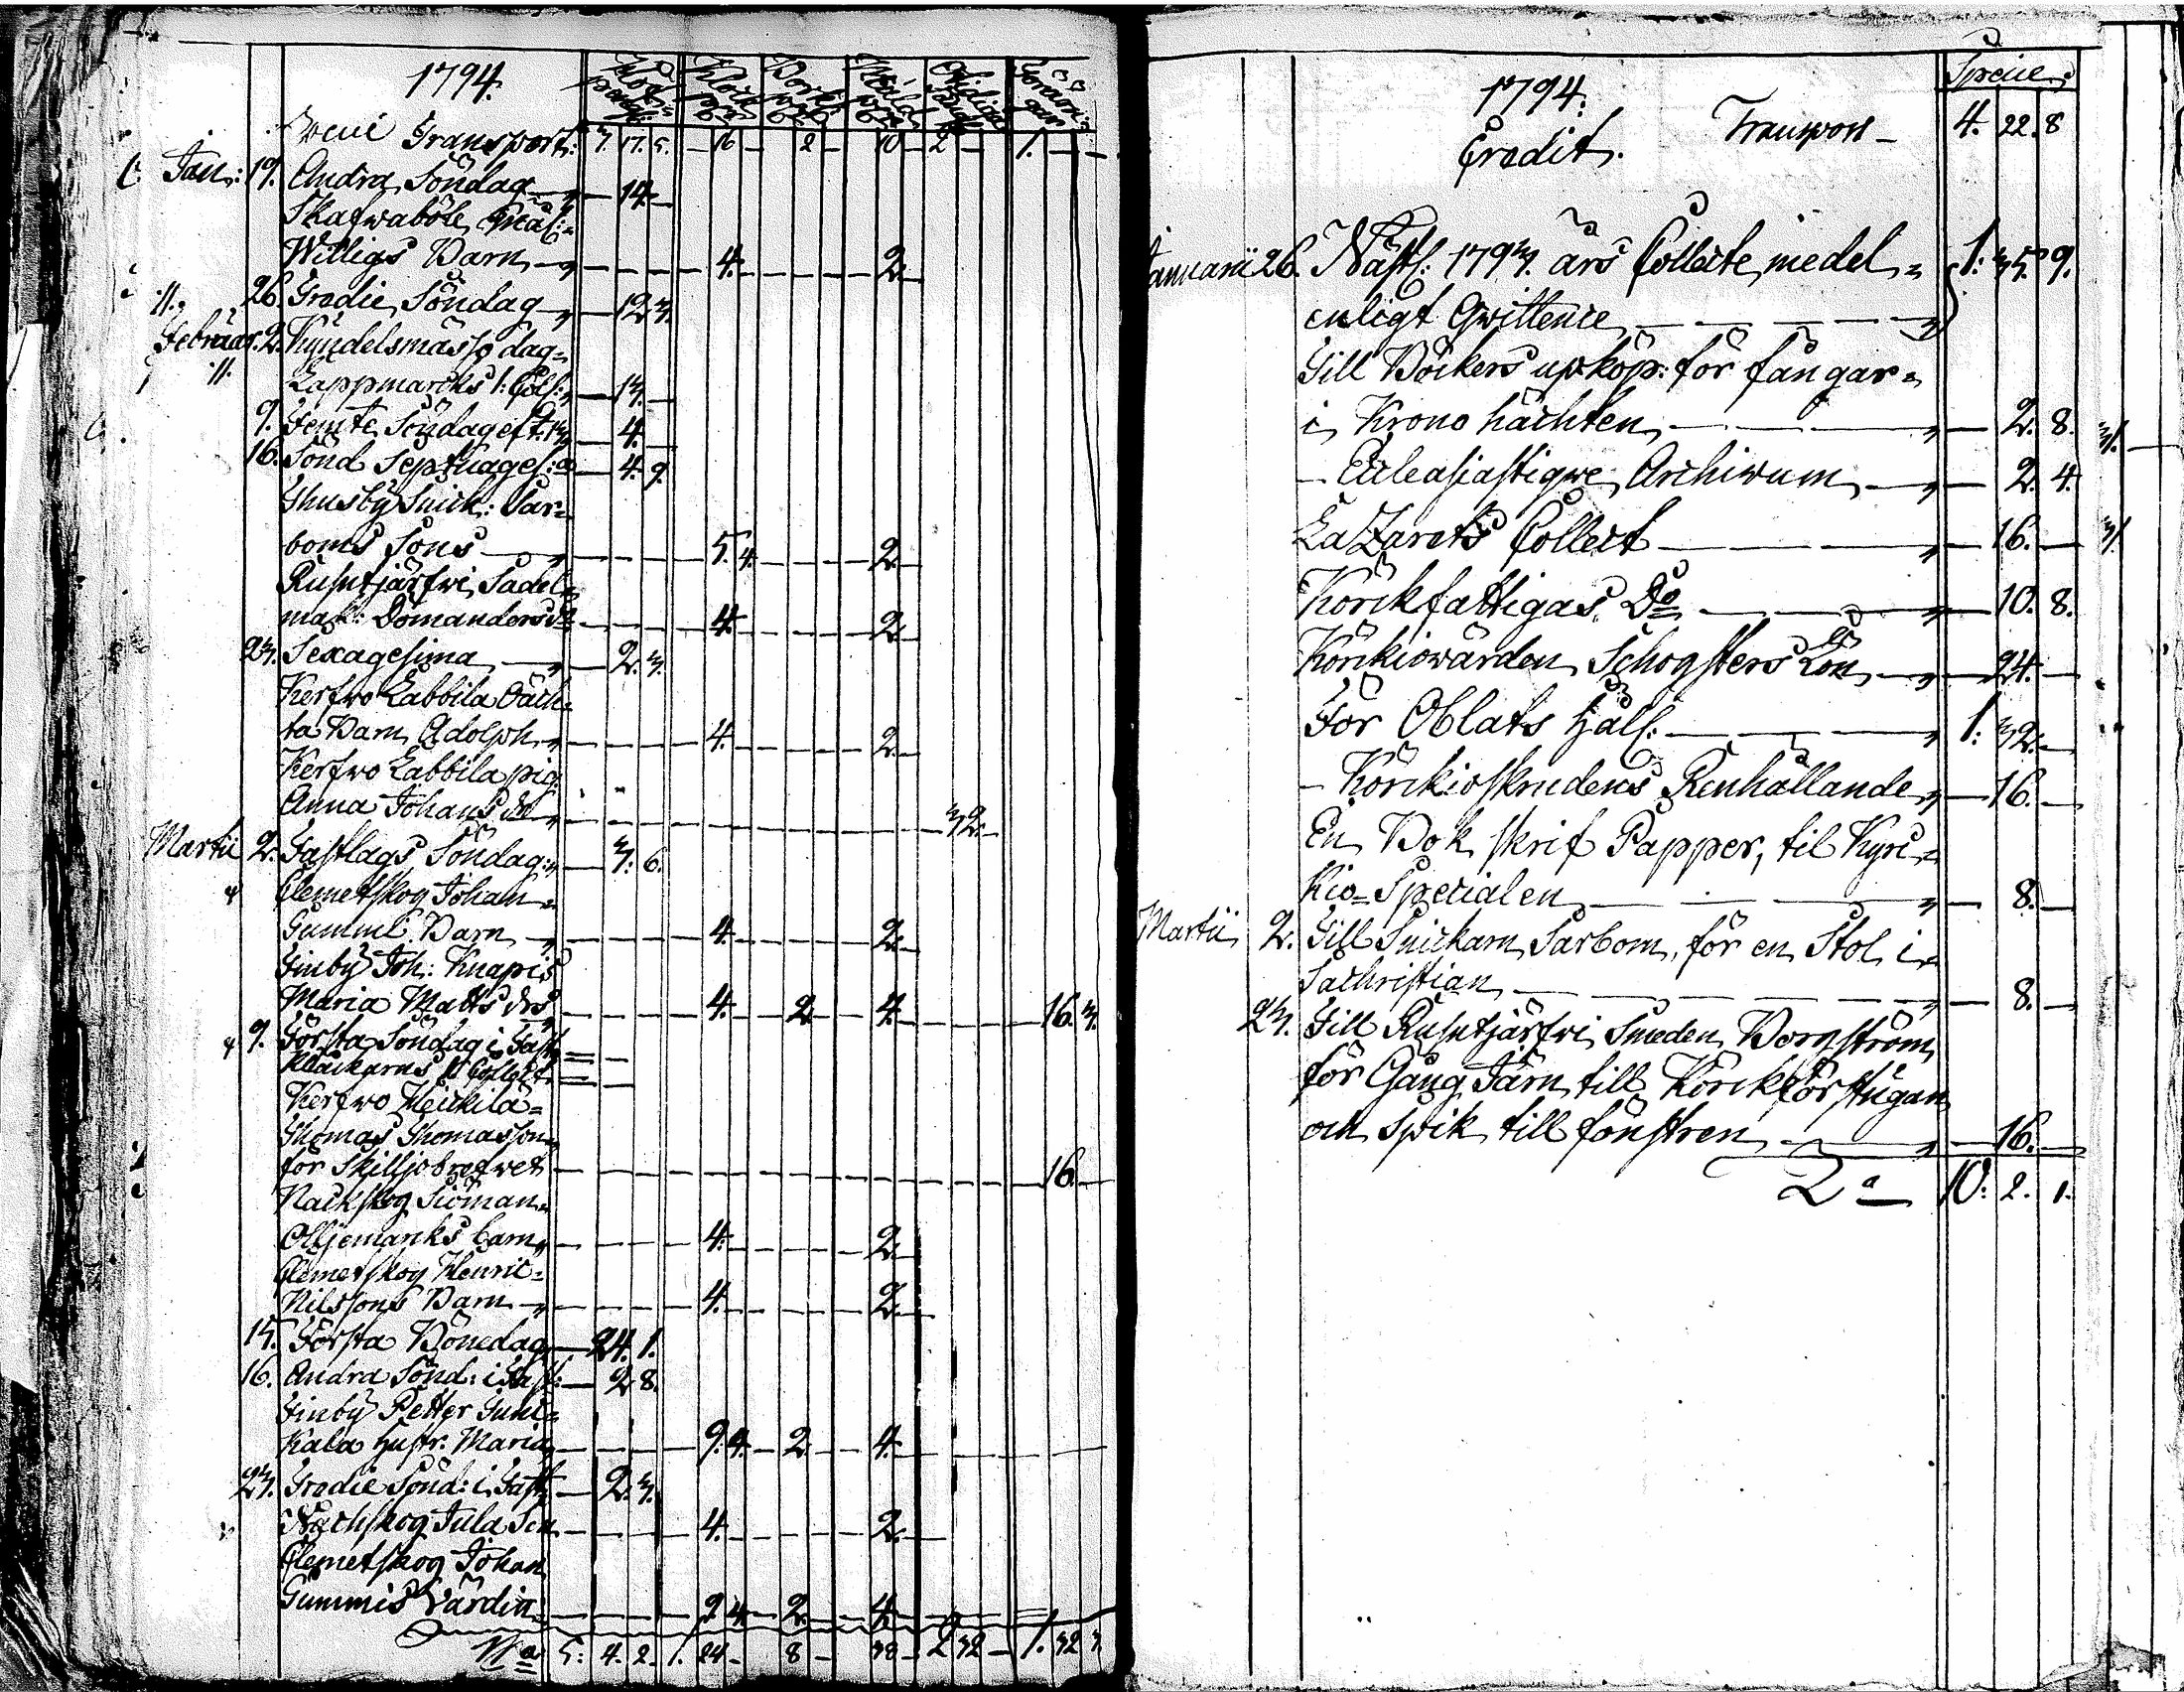 1794.
Transport: 3. 17. 5. — 16 — 2 — 10 — 2 — 1. — —
Jan: 19. Andra Söndag — 14 —
Skafwaböle
Willigs Barn — 4. — 2. —
26. Tredie Söndag — 12. 3.
Februar. 2. Kyndelsmässo dag
Lappmarcks 1: Coll: — 13. —
9. Femte Söndag eft: — 4. —
16. Sönd Septuages: — 4. 9.
Thusby Snick: Sar=
boms Sons — 5. 4. — 2. —
Rusutjärfwi Sadel=
mak: Domanders — 4. — 2 —
23. Sexagesima — 2. 3.
Kerfwo Labbila
Barn Adolph — 4. — 2 —
Kerfwo Labbila pig:
Anna Johans dr — 32. —
Martii 2. Fastlags Söndag: — 3. 6.
Clemetskog Johan
Gummi Barn — 4. — 2. —
Finby Joh: Knapis
Maria Matts drs — 4. — 2 — 4. — 16. 3.
9. Första Söndag i Fast
Collect
Kerfwo Heickilä=
Thomas Thomasson
för Skilljobrefwet — 16. —
Nackskog Siöman
Olljemarcks barn — 4. — 2. —
Clemetskog Henric=
Nilssons Barn — 4. — 2. —
15. Första Bönedag — 24. 1.
16. Andra Sönd: i Fast: — 2 8.
Finby Petter Juni=
kala hustr. Maria — 9. 4. — 2 — 4. —
23. Tredie Sönd: i Fast — 2. 3.
Nackskog Jula Son — 4. — 2. —
Clemetskog Johan
Gummis Värdin — 9 4 — 2 — 4 —
5: 4. 2. 1. 24 — 8 — 38 — 2 32 — 1. 32 3.
Specie
1794.
Credit. Transport — 4. 22. 8
Januarii 26. Nästl: 1793. års Collecte medel= 1: 35. 9.
enligt Qwittence —
Till Böckers upköp: för fångar=
i Krono häckten — 2. 8.
— Ecleasiastiqve Archivum — 2. 4.
Lazarets Collect — 16. —
Körckfattigas Do — 10. 8.
Körckiowärden Schogsters Lön — 24. —
För Oblats håll: — 1: 32. —
— Körckioskrudens Renhållande — 16. —
En Bok skrif Papper, til Kyrc=
kio=Specialen — 8. —
Martii 2. Till Snickarn Sarbom, för en Stol i
Sachristian — 8. —
23. Till Rusutjärfwi Smeden Borgström
för Gång Järn till Körckförstugan
och spik till fönstren — 16. —
10: 2. 1.